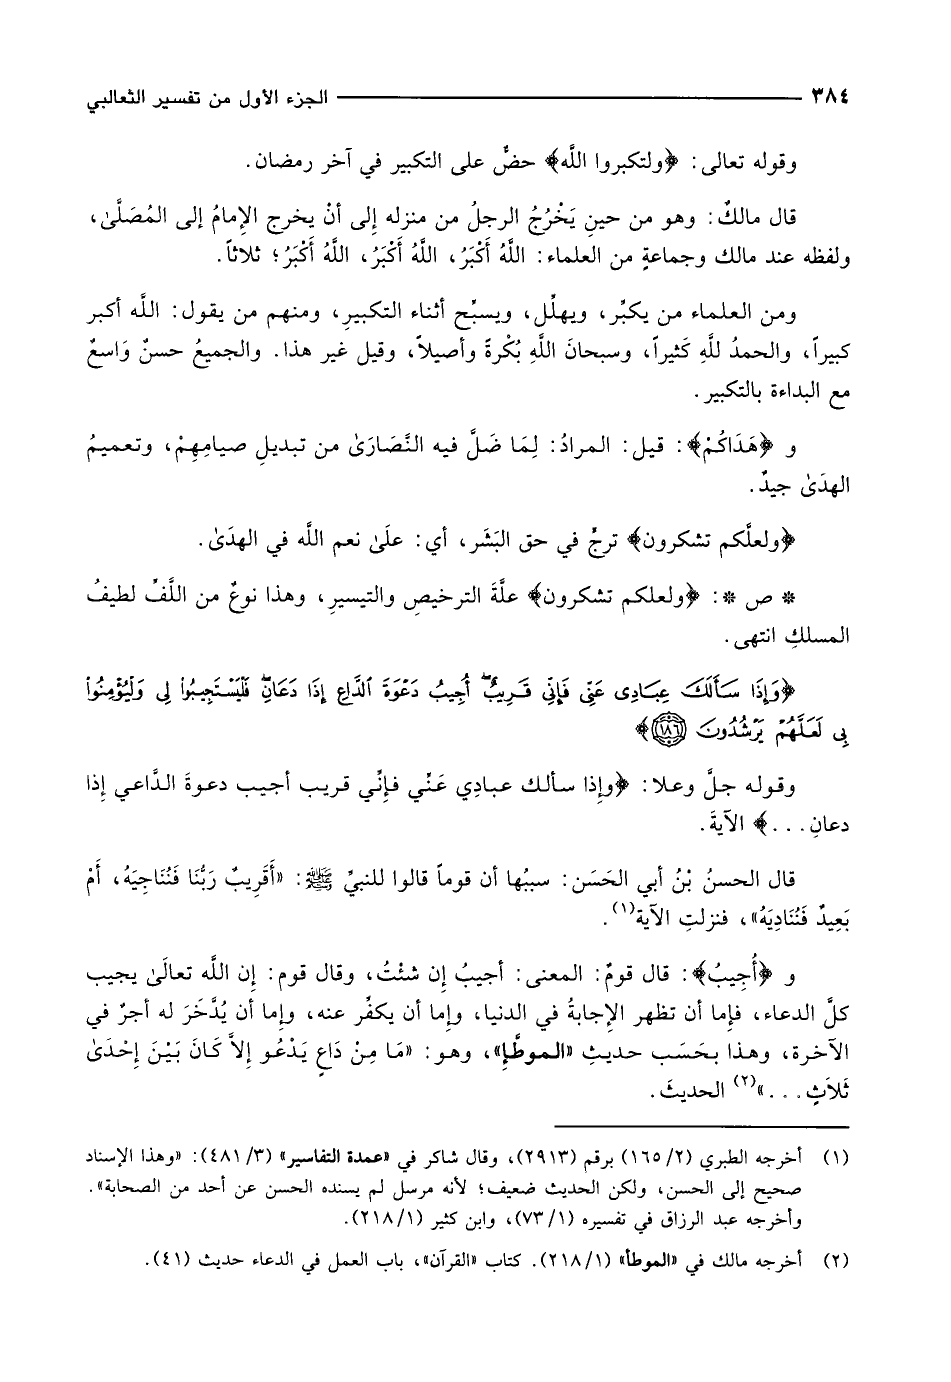 ٣٨٤ ــــــــــــــــــــ الجزء الأول من تفسير الثعالبي
وقوله تعالى: ﴿ولتكبروا اللَّه﴾ حضٌّ على التكبير في آخر رمضان.
قال مالكٌ: وهو من حينِ يَخْرُجُ الرجلُ من منزله إِلى أنْ يخرج الإِمامُ إلى المُصَلَّىٰ،
ولفظه عند مالك وجماعةٍ من العلماء: اللَّهُ أَكْبَرُ، اللَّهُ أَكْبَرُ، اللَّهُ أَكْبَرُ؛ ثلاثاً.
ومن العلماء من يكبِّر، ويهلِّل، ويسبِّح أثناء التكبيرِ، ومنهم من يقول: اللَّه أكبر
كبيراً، والحمدُ للَّهِ كَثيراً، وسبحانَ اللَّهِ بُكْرةً وأصيلاً، وقيل غير هذا. والجميعُ حسنٌ وَاسعٌ
مع البداءة بالتكبير.
و ﴿هَدَاكُمْ﴾: قيل: المرادُ: لِمَا ضَلَّ فيه النَّصَارَىٰ من تبديلِ صيامِهِمْ، وتعميمُ
الهدَىٰ جيدٌ.
﴿ولعلَّكم تشكرون﴾ ترجٌّ في حق البَشَر، أي: علَىٰ نعم اللَّه في الهدَىٰ.
* ص *: ﴿ولعلكم تشكرون﴾ علَّةَ الترخيصِ والتيسيرِ، وهذا نوعٌ من اللَّفِّ لطيفُ
المسلكِ انتهى.
﴿وَإِذَا سَأَلَكَ عِبَادِى عَنِّى فَإِنِّى قَرِيبٌ ۖ أُجِيبُ دَعْوَةَ ٱلدَّاعِ إِذَا دَعَانِ ۖ فَلْيَسْتَجِيبُواْ لِى وَلْيُؤْمِنُواْ
بِى لَعَلَّهُمْ يَرْشُدُونَ ١٨٦﴾
وقوله جلَّ وعلا: ﴿وإِذا سألك عبادِي عَنِّي فإِنِّي قريب أجيب دعوةَ الدَّاعي إِذا
دعانِ...﴾ الآيةَ.
قال الحسنُ بْنُ أبي الحَسَن: سببُها أن قوماً قالوا للنبيِّ ﷺ: «أَقَرِيبٌ رَبُّنَا فَنُنَاجِيَهُ، أَمْ
بَعِيدٌ فَنُنَادِيَهُ»، فنزلتِ الآية(١).
و ﴿أُجِيبُ﴾: قال قومٌ: المعنى: أجيبُ إِن شئْتُ، وقال قوم: إِن اللَّه تعالَىٰ يجيب
كلَّ الدعاء، فإِما أن تظهر الإِجابةُ في الدنيا، وإِما أن يكفِّر عنه، وإِما أن يُدَّخَرَ له أجرٌ في
الآخرة، وهذا بحَسَب حديثِ «الموطَّإِ»، وهو: «مَا مِنْ دَاعٍ يَدْعُو إِلاَّ كَانَ بَيْنَ إِحْدَىٰ
ثَلاَثٍ...»(٢) الحديثَ.
(١) أخرجه الطبري (٢/ ١٦٥) برقم (٢٩١٣)، وقال شاكر في «عمدة التفاسير» (٣/ ٤٨١): «وهذا الإسناد
صحيح إلى الحسن، ولكن الحديث ضعيف؛ لأنه مرسل لم يسنده الحسن عن أحد من الصحابة».
وأخرجه عبد الرزاق في تفسيره (١/ ٧٣)، وابن كثير (١/ ٢١٨).
(٢) أخرجه مالك في «الموطأ» (١/ ٢١٨). كتاب «القرآن»، باب العمل في الدعاء حديث (٤١).